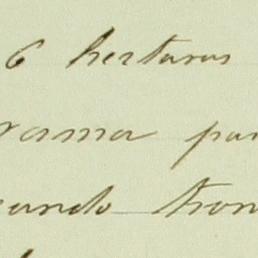 6 hectaras
rama par
eando tron